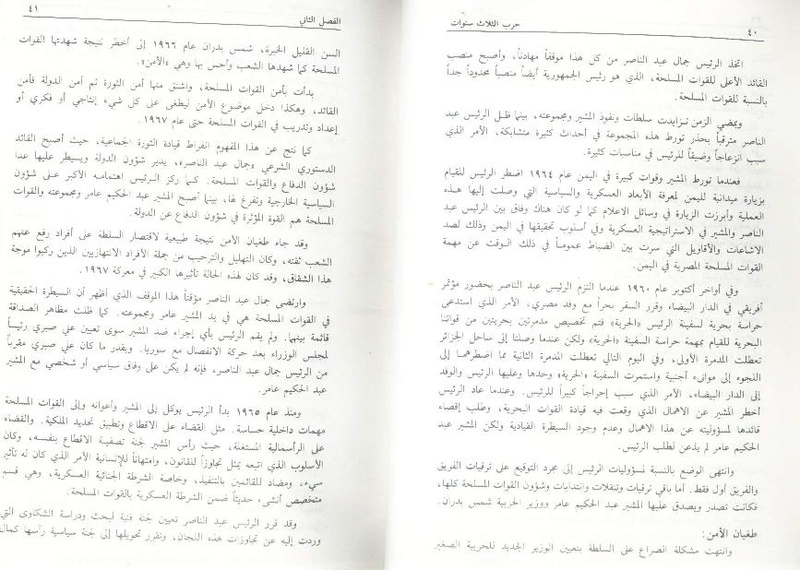 ٤٠
حرب الثلاث سنوات
اتخذ الرئيس جمال عبد الناصر من كل هذا موقفاً مهادناً، وأصبح منصب
القائد الأعلى للقوات المسلحة، الذي هو رئيس الجمهورية أيضاً منصباً محدوداً جداً
بالنسبة للقوات المسلحة.
وبمضي الزمن تزايدت سلطات ونفوذ المشير ومجموعته، بينما ظل الرئيس عبد
الناصر مترقباً بحذر تورط هذه المجموعة في أحداث كثيرة متشابكة، الأمر الذي
سبب انزعاجاً وضيقاً للرئيس في مناسبات كثيرة.
فعندما تورط المشير وقوات كبيرة في اليمن عام ١٩٦٤ اضطر الرئيس للقيام
بزيارة ميدانية لليمن لمعرفة الأبعاد العسكرية والسياسية التي وصلت إليها هذه
العملية وأبرزت الزيارة في وسائل الاعلام كما لو كان هناك وفاق بين الرئيس عبد
الناصر والمشير في الاستراتيجية العسكرية وفي أسلوب تحقيقها في اليمن وذلك لصد
الاشاعات والأقاويل التي سرت بين الضباط عموماً في ذلك الوقت عن مهمة
القوات المسلحة المصرية في اليمن.
وفي أواخر أكتوبر عام ١٩٦٠ عندما التزم الرئيس عبد الناصر بحضور مؤتمر
أفريقي في الدار البيضاء وقرر السفر بحراً مع وفد مصري، الأمر الذي استدعى
حراسة بحرية لسفينة الرئيس «الحرية» فتم تخصيص مدمرتين بحريتين من قواتنا
البحرية للقيام بمهمة حراسة السفينة «الحرية» ولكن عندما وصلنا إلى ساحل الجزائر
تعطلت المدمرة الأولى، وفي اليوم التالي تعطلت المدمرة الثانية مما اضطرهما إلى
اللجوء إلى موانىء أجنبية واستمرت السفينة «الحرية» وحدها وعليها الرئيس والوفد
إلى الدار البيضاء، الأمر الذي سبب إحراجاً كبيراً للرئيس. وعندما عاد الرئيس
أخطر المشير عن الاهمال الذي وقعت فيه قيادة القوات البحرية، وطلب إقصاء
قائدها لمسؤوليته عن هذا الاهمال وعدم وجود السيطرة القيادية ولكن المشير عبد
الحكيم عامر لم يذعن لطلب الرئيس.
وانتهى الوضع بالنسبة لمسؤوليات الرئيس إلى مجرد التوقيع على ترقيات الفريق
والفريق أول فقط. أما باقي ترقيات وتنقلات وانتدابات وشؤون القوات المسلحة كلها،
فكانت تصدر ويصدق عليها المشير عبد الحكيم عامر ووزير الحربية شمس بدران.
طغيان الأمن:
وانتهت مشكلة الصراع على السلطة بتعيين الوزير الجديد للحربية الصغير
الفصل الثاني
٤١
السن القليل الخبرة، شمس بدران عام ١٩٦٦ إلى أخطر نتيجة شهدتها القوات
المسلحة كما شهدها الشعب وأحس بها وهي «الأمن».
بدأت بأمن القوات المسلحة، واشتق منها أمن الثورة ثم أمن الدولة فأمن
القائد، وهكذا دخل موضوع الأمن ليطغى على كل شيء إنتاجي أو فكري أو
إعداد وتدريب في القوات المسلحة حتى عام ١٩٦٧.
كما نتج عن هذا المفهوم انفراط قيادة الثورة الجماعية، حيث أصبح القائد
الدستوري الشرعي «جمال عبد الناصر»، يدير شؤون الدولة ويسيطر عليها عدا
شؤون الدفاع والقوات المسلحة. كما ركز الرئيس اهتمامه الأكبر على شؤون
السياسية الخارجية وتفرغ لها، بينما أصبح المشير عبد الحكيم عامر ومجموعته والقوات
المسلحة هم القوة المؤثرة في شؤون الدفاع عن الدولة.
وقد جاء طغيان الأمن نتيجة طبيعية لاقتصار السلطة على أفراد رفع عنهم
الشعب ثقته، وكان التهليل والترحيب من جملة الأفراد الانتهازيين الذين ركبوا موجة
هذا الشقاق، وقد كان لهذه الحالة تأثيرها الكبير في معركة ١٩٦٧.
وارتضى جمال عبد الناصر مؤقتاً هذا الموقف الذي أظهر أن السيطرة الحقيقية
في القوات المسلحة هي في يد المشير عامر ومجموعته. كما ظلت مظاهر الصداقة
قائمة بينهما. ولم يقم الرئيس بأي إجراء ضد المشير سوى تعيين علي صبري رئيساً
لمجلس الوزراء بعد حركة الانفصال مع سوريا. وبقدر ما كان علي صبري مقرباً
من الرئيس جمال عبد الناصر، فإنه لم يكن على وفاق سياسي أو شخصي مع المشير
عبد الحكيم عامر.
ومنذ عام ١٩٦٥ بدأ الرئيس يوكل إلى المشير وأعوانه وإلى القوات المسلحة
مهمات داخلية حساسة. مثل القضاء على الاقطاع وتطبيق تحديد الملكية. والقضاء
على الرأسمالية المستغلة، حيث رأس المشير لجنة تصفية الاقطاع بنفسه، وكان
الأسلوب الذي اتبعه يمثل تجاوزاً للقانون، وامتهاناً للإنسانية الأمر الذي كان له تأثير
سيء، ومضاد للقائمين بالتنفيذ، وخاصة الشرطة الجنائية العسكرية، وهي قسم
متخصص أنشىء حديثاً ضمن الشرطة العسكرية بالقوات المسلحة.
وقد قرر الرئيس عبد الناصر تعيين لجنة فنية لبحث ودراسة الشكاوى التي
وردت إليه عن تجاوزات هذه اللجان، وتقرر تحويلها إلى لجنة سياسية رأسها كمال